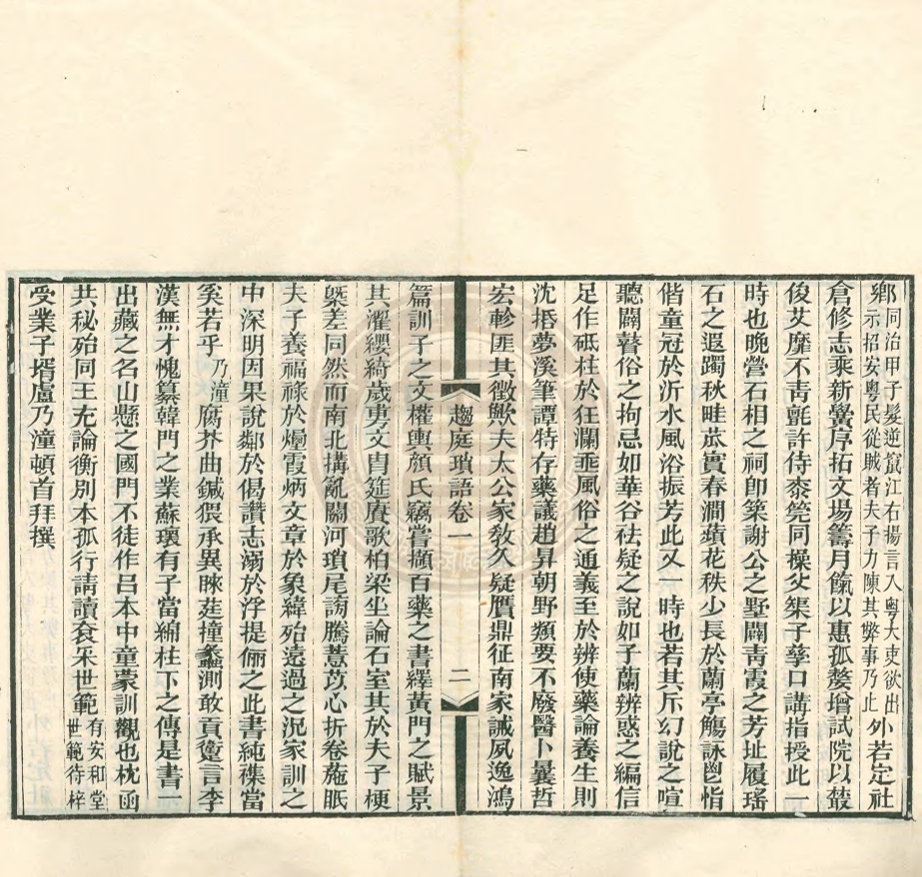 鄉同治甲子髮逆竄江右揚言入粵大吏欲出示招安粵民從賊者夫子力陳其弊事乃止外若定社
倉修志乘新黌序拓文場籌月餼以惠孤嫠增試院以萃
俊艾靡不靑氈許侍桼筦同操父榘子孳口講指授此一
時也晚營石相之祠卽築謝公之墅闢靑霞之芳址履瑤
石之遐躅秋畦菘實春澗蘋花秩少長於蘭亭觴詠鬯惰
偕童冠於沂水風浴振芳此又一時也若其斥幻說之喧
聽闢瞽俗之拘忌如華谷祛疑之說如子蘭辨惑之編信
足作砥柱於狂瀾垂風俗之通義至於辨使藥論養生則
沈括夢溪筆譚特存藥議趙昇朝野類要不廢醫卜曩哲
宏軫匪其徵歟夫太公家敎久疑贋鼎征南家誡夙逸鴻
趨庭瑣語卷一
二
篇訓子之文權輿顏氏竊嘗擷百藥之書繹黃門之賦景
其濯纓綺歲冑筵賡歌柏梁坐論石室其於夫子梗
槩差同然而南北搆亂關河瑣尾謗騰薏苡心折卷葹眂
夫子養福祿於煙霞炳文章於象緯殆遠過之況家訓之
中深明因果說鄰於偈讚志溺於浮提儷之此書純襍當
奚若乎乃潼腐芥曲鍼猥承異睞莛撞蠡測敢貢躗言李
漢無才愧纂韓門之業蘇瓌有子當綿柱下之傳是書一
出藏之名山懸之國門不徒作呂本中童蒙訓觀也枕函
共秘殆同王充論衡別本孤行請讀袁采世範有安和堂世範待梓
受業子壻盧乃潼頓首拜撰